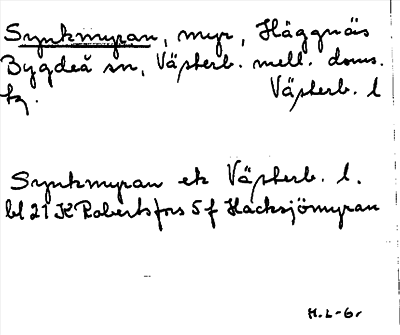 Synkmyran, myr, Häggnäs
Bygdeå sn, Västerb. mell. doms.
tg. Västerb. l
Synkmyran ek Västerb. l.
bl 21 K Robertsfors 5 f Hacksjömyran
H.L-G.